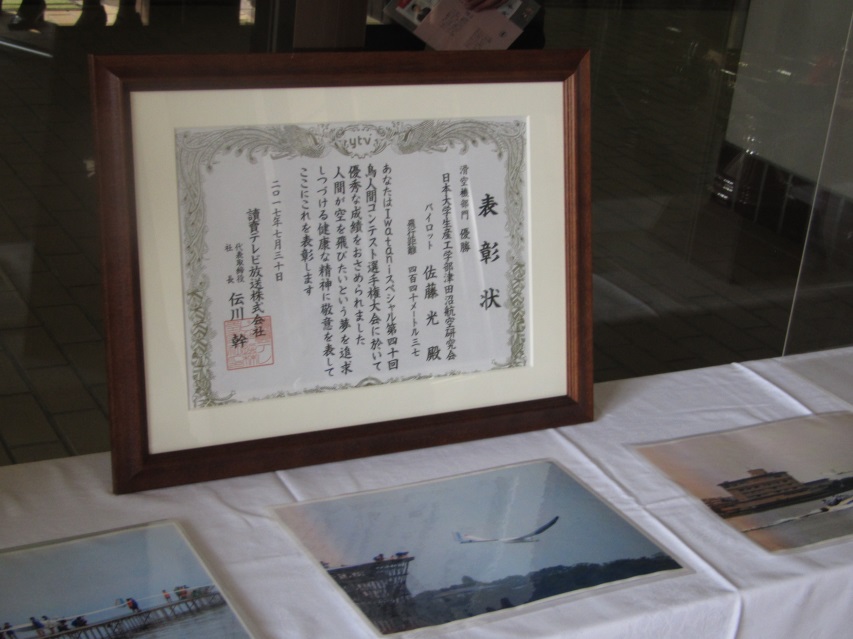 ytv
表彰状
滑空機部門 優勝
日本大学生産工学部津田沼航空研究会
パイロット 佐藤 光 殿
飛行距離 四百四十メートル三七
あなたはIwataniスペシャル第四十回
鳥人間コンテスト選手権大会に於いて
優秀な成績をおさめられました
人間が空を飛びたいという夢を追求
しつづける健康な精神に敬意を表して
ここにこれを表彰します
二〇一七年七月三十日
讀賣テレビ放送株式会社
代表取締役
社長 伝川 幹